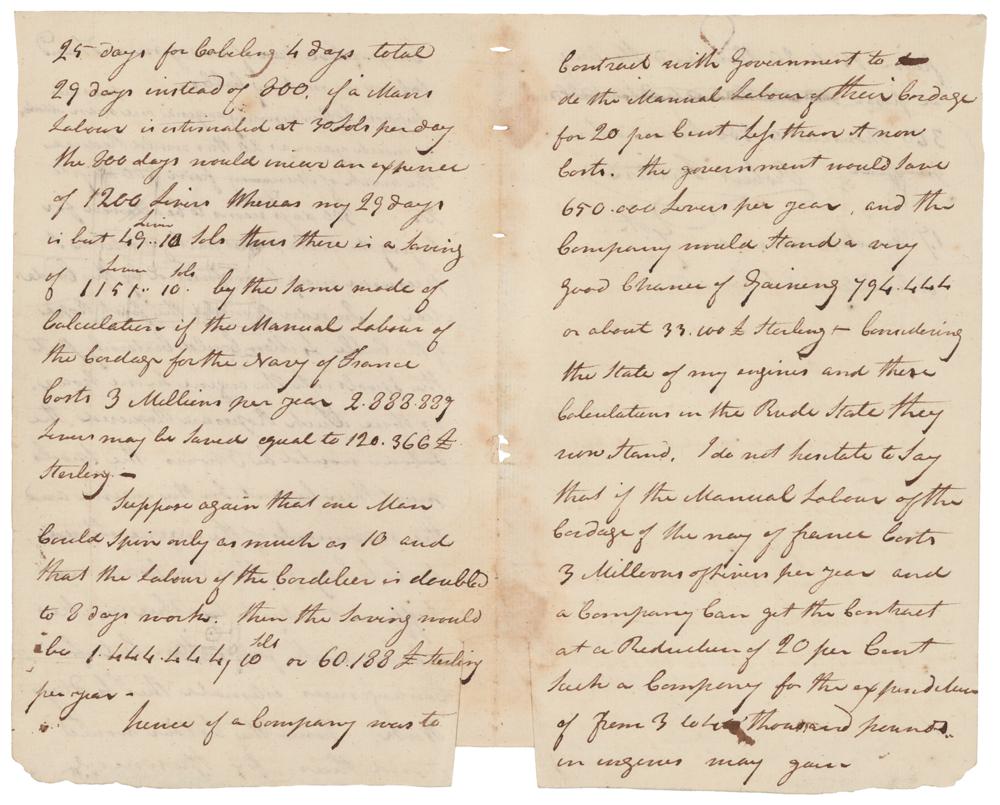 25 days for Cabeling 4 days total
29 days instead of 800. if a Mans
Labour is estimated at 30 Sols per day
the 800 days would incur an expence
of 1200 Livers Whereas my 29 days
Livers
is but 49..10 Sols thus there is a Saving
Livers Sols
of 1151.. 10. by the Same mode of
Calculation if the Manual Labour of
the Cordage for the Navy of France
Costs 3 Millions per year 2.888.889
Livers may be Saved equal to 120.366 £
Sterling –
Suppose again that one Man
Could Spin only as much as 10 and
that the Labour of the Cordelier is doubled
to 8 days work. then the Saving would
Sols
be 1.444.444, 10 or 60.188 £ Sterling
per year –
hence if a Company was to
Contract with Government to
do the Manual Labour of their Cordage
for 20 per Cent less than it now
Costs. the government would Save
650.000 Livers per year, and the
Company would Stand a very
good Chance of Gaineng 794.444
or about 33.100 £ Sterling – Considering
the State of my engines and these
Calculations in the Rude State they
now Stand. I do not hesitate to Say
that if the Manual Labour of the
Cordage of the navy of france Costs
3 Millions of Livers per year and
a Company Can get the Contract
at a Reduction of 20 per Cent
Such a Company for the expenditure
of from 3 to thousand pounds
in engines may gain